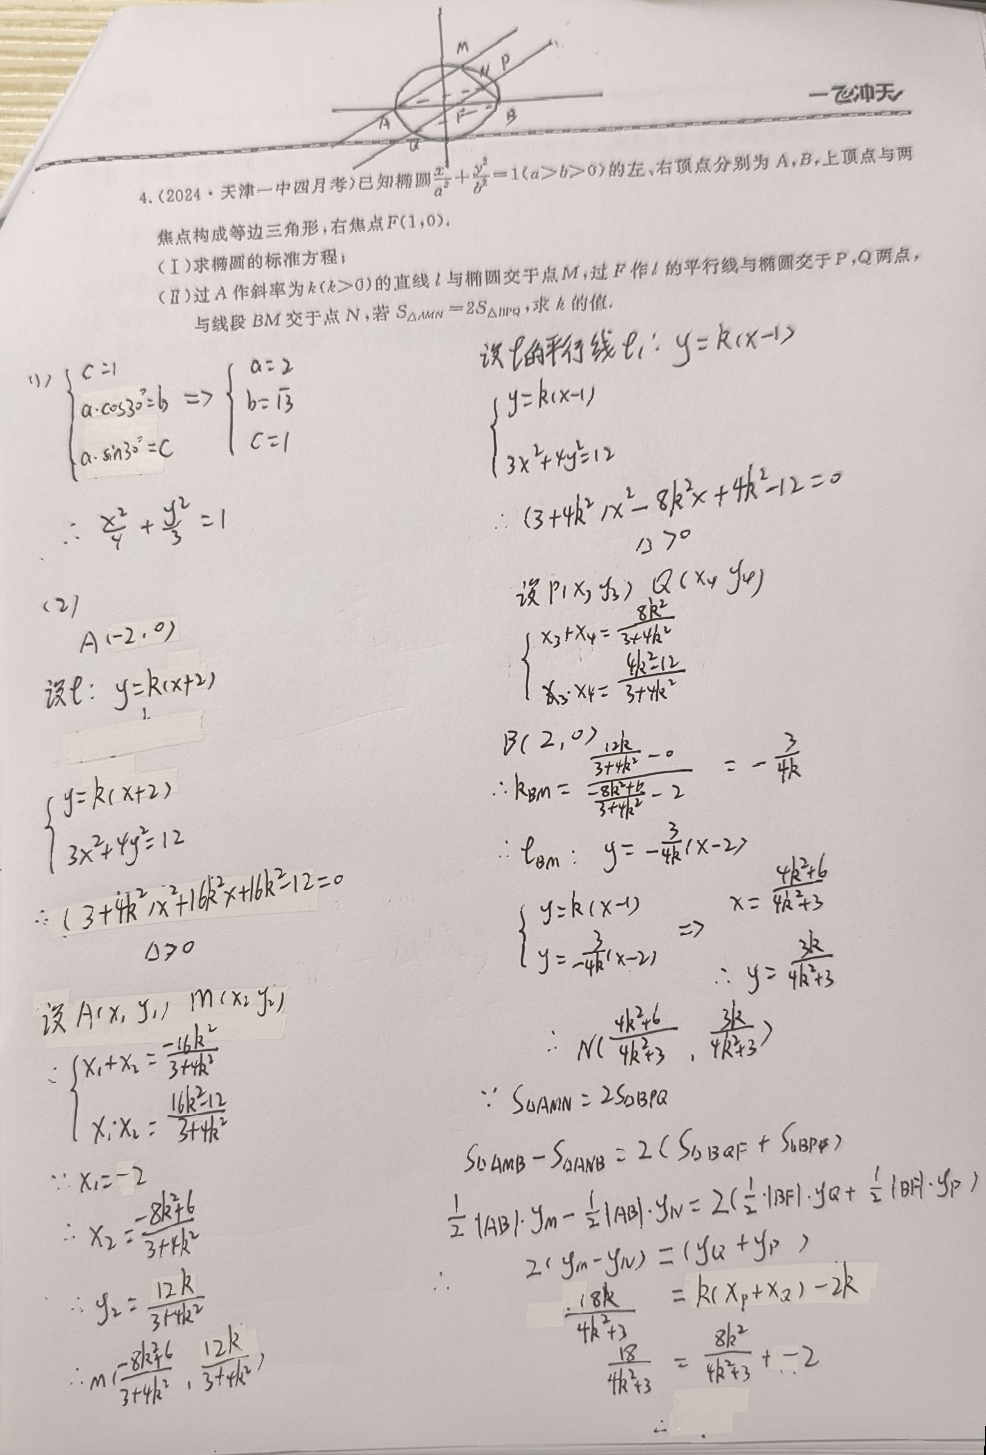 M
N
P
A
Q
F
B
一飞冲天
4.(2024·天津一中四月考)已知椭圆x²/a²+y²/b²=1(a>b>0)的左、右顶点分别为A,B,上顶点与两
焦点构成等边三角形,右焦点F(1,0).
(Ⅰ)求椭圆的标准方程;
(Ⅱ)过A作斜率为k(k>0)的直线l与椭圆交于点M,过F作l的平行线与椭圆交于P,Q两点,
与线段BM交于点N,若S△AMN=2S△BPQ,求k的值.
(1) { c=1
a·cos30°=b
a·sin30°=c
=> { a=2
b=√3
c=1
∴ x²/4 + y²/3 = 1
(2)
A(-2,0)
设l: y=k(x+2)
{ y=k(x+2)
3x²+4y²=12
∴ (3+4k²)x²+16k²x+16k²-12=0
△>0
设A(x₁ y₁) M(x₂ y₂)
∴ { x₁+x₂ = -16k²/3+4k²
x₁·x₂ = 16k²-12/3+4k²
∵ x₁=-2
∴ x₂ = -8k²+6/3+4k²
∴ y₂ = 12k/3+4k²
∴ M(-8k²+6/3+4k² , 12k/3+4k²)
设l的平行线l₁: y=k(x-1)
{ y=k(x-1)
3x²+4y²=12
∴ (3+4k²)x²-8k²x+4k²-12=0
△>0
设P(x₃ y₃) Q(x₄ y₄)
{ x₃+x₄ = 8k²/3+4k²
x₃·x₄ = 4k²-12/3+4k²
B(2,0)
∴ kBM = (12k/3+4k² - 0)/(-8k²+6/3+4k² - 2) = -3/4k
∴ lBM: y = -3/4k(x-2)
{ y=k(x-1)
y = 3/-4k(x-2)
=> x = 4k²+6/4k²+3
∴ y = 3k/4k²+3
∴ N(4k²+6/4k²+3 , 3k/4k²+3)
∵ S△AMN = 2S△BPQ
S△AMB - S△ANB = 2(S△BQF + S△BPF)
1/2|AB|·yM - 1/2|AB|·yN = 2(1/2·|BF|·yQ + 1/2|BF|·yP)
∴ 2(yM-yN) = (yQ+yP)
18k/4k²+3 = k(xP+xQ)-2k
18/4k²+3 = 8k²/4k²+3 + -2
∴